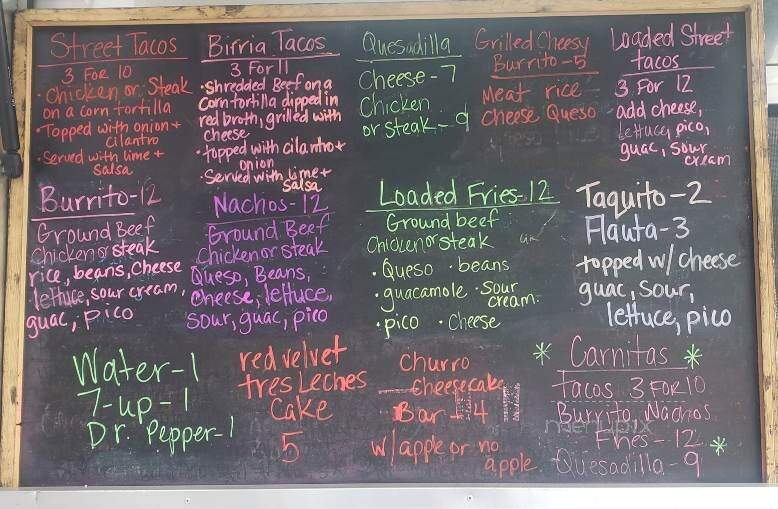 Street Tacos
3 For 10
• Chicken or Steak
on a corn tortilla
• Topped with onion +
cilantro
• Served with lime +
salsa
Birria Tacos
3 For 11
• Shredded Beef on a
Corn tortilla dipped in
red broth, grilled with
cheese
• topped with cilantro +
onion
• Served with lime +
Salsa
Quesadilla
Cheese - 7
Chicken
or steak - 9
Grilled Cheesy
Burrito - 5
Meat rice
cheese Queso
Loaded Street
tacos
3 For 12
add cheese,
Lettuce, pico,
guac, sour
cream
Burrito - 12
Ground Beef
Chicken or steak
rice, beans, Cheese
lettuce, sour cream,
guac, pico
Nachos - 12
Ground Beef
Chicken or steak
Queso, Beans,
cheese, lettuce,
sour, guac, pico
Loaded Fries - 12
Ground beef
Chicken or steak
• Queso • beans
• guacamole • Sour
cream
• pico • Cheese
Taquito - 2
Flauta - 3
topped w/ cheese
guac, sour,
lettuce, pico
Water - 1
7-up - 1
Dr. Pepper - 1
red velvet
tres Leches
Cake
5
Churro
Cheesecake
Bar - 4
w/ apple or no
apple
* Carnitas *
Tacos 3 FOR 10
Burrito, Nachos
Fries - 12 *
Quesadilla - 9
menupix